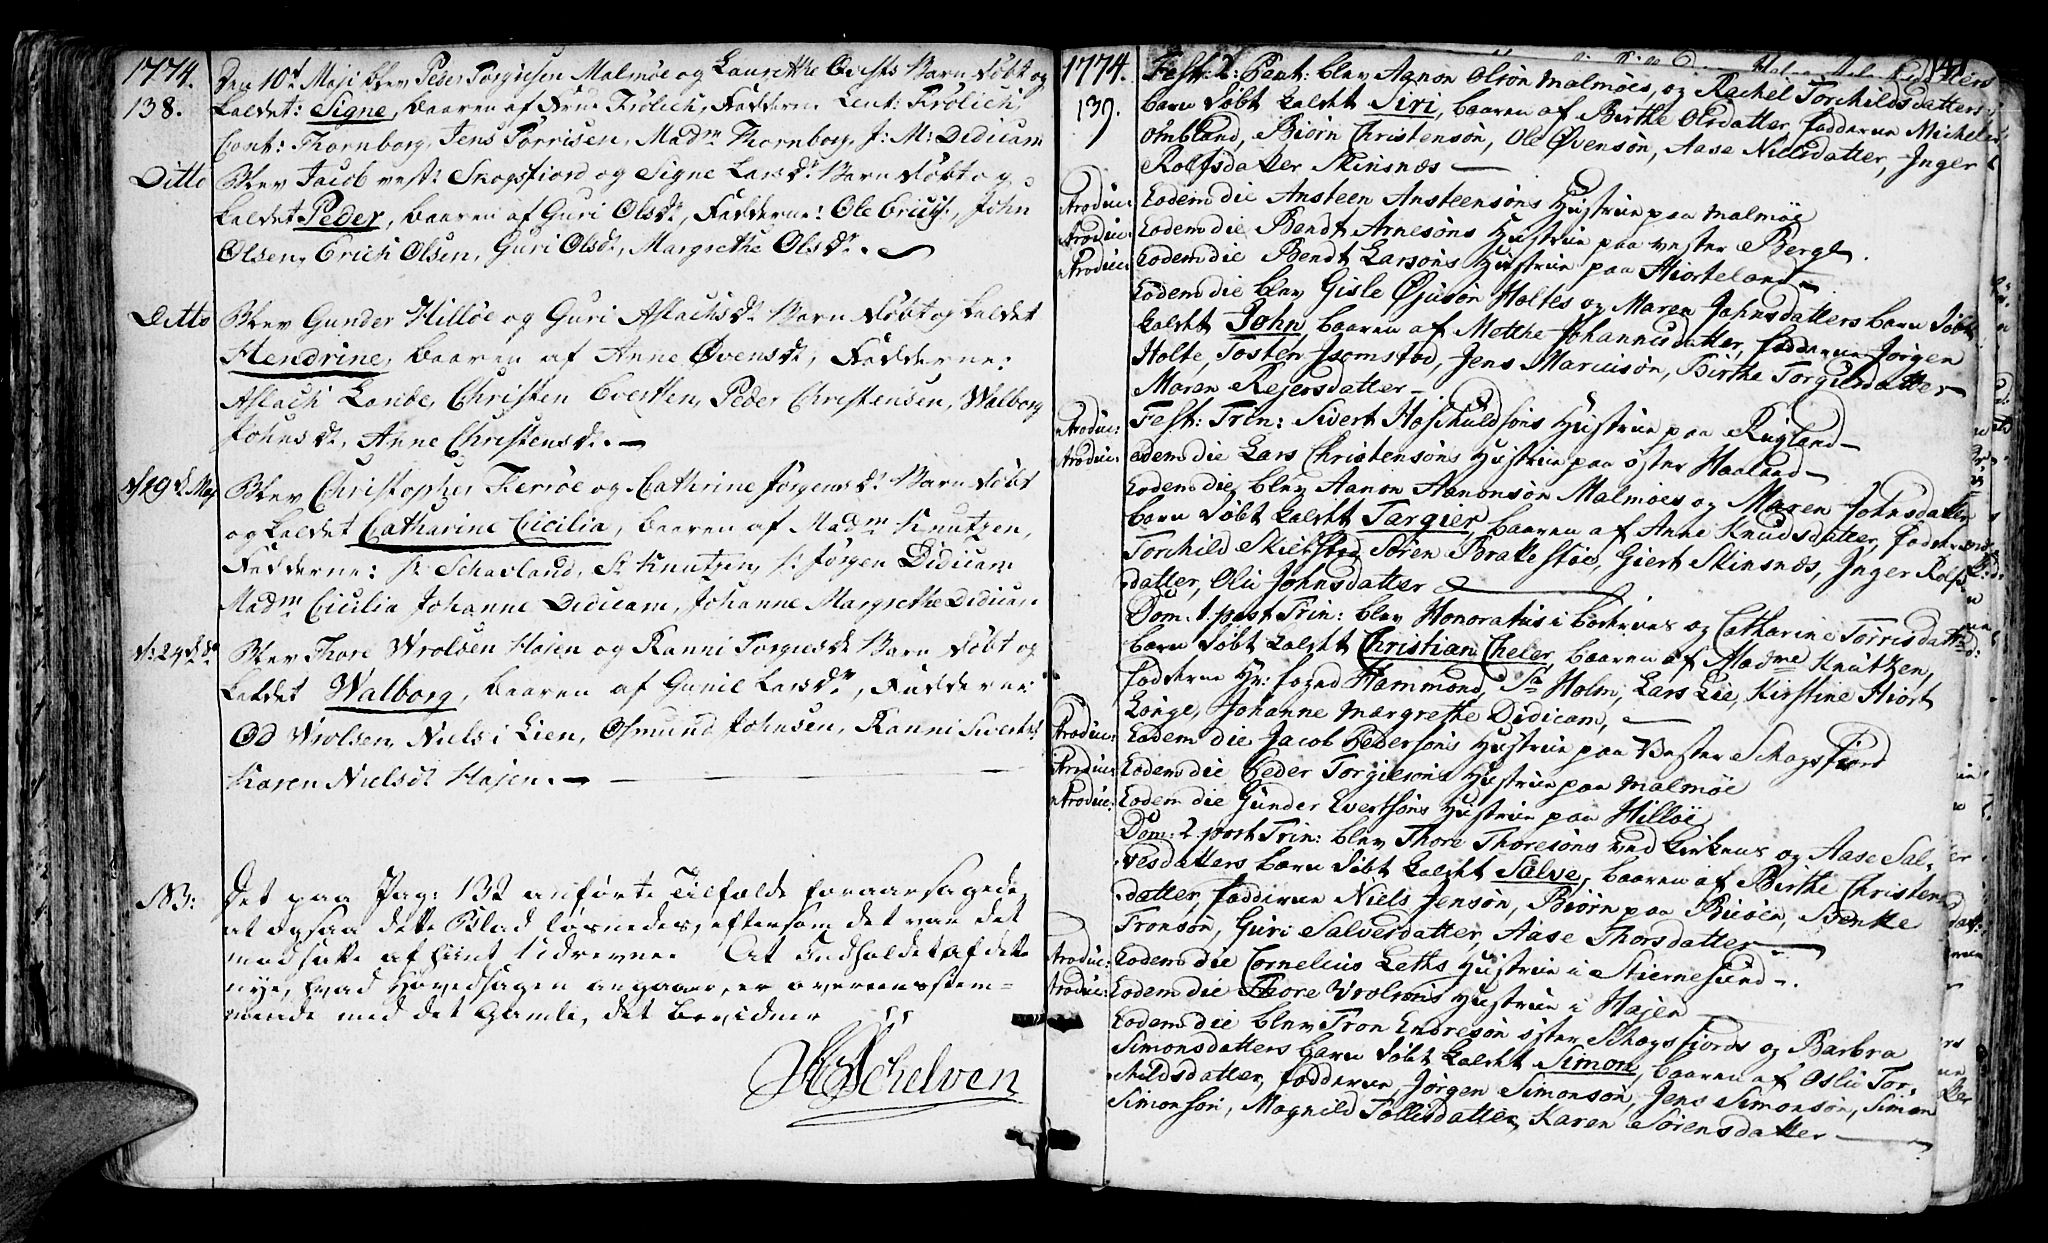 1774.
138.
Den 10d Maji blev Peder Torgiesen Malmøe og Laurethe Everts Barn døbt og
kaldet: Signe, baaren af Frue Frølich, Fadderne Lieut: Frølich,
Cont: Thornborg, Jens Torrisen, Madm Thornborg, J: M: Didicam
Ditto Blev Jacob vest: Skogsfiord og Signe Larsdr Barn døbt og
kaldet Peder, baaren af Guri Olsdr, Fadderne: Ole Erichs:, John
Olsen, Erich Olsen, Guri Olsdr, Margrethe Olsdr.
Ditto Blev Gunder Hilløe og Guri Aslachsdr Barn døbt og kaldet
Hendrine, baaren af Anne Øvensdr, Fadderne:
Aslach Lande, Christen Evertsen, Peder Christensen, Walborg
Johnsdr, Anne Christensdr.
d 19d Maj Blev Christopher Ferrøe og Cathrine Jørgensdr Barn døbt
og kaldet Catharine Cicilia, baaren af Madm Knutzen,
Fadderne: Sr Schavland, Sr Knutzen, Sr Jørgen Didicam
Madm Cicilia Johanne Didicam, Johanne Margrethe Didicam
d: 24d do Blev Thore Wrolsen Høien og Ranni Torgiusdr Barn døbt og
kaldet Walborg, baaren af Gunil Larsdr, Fadderne:
Od Wrolsen, Niels i Lien, Osmund Johnsen, Ranni Sivertsdr
Karen Nielsdr Høien.
183: Det paa Pag: 132 anførte Tilfælde foraarsagede,
at ogsaa dette Blad løsnedes, eftersom det var det
modsatte af hiint udrevne. At Indholdet af dette
nye, hvad Hovedsagen angaaer, er overeensstem-
mende med det Gamle, det bevidner
Schelven
1774.
139.
Fest: 2: Pent: blev Aanon Olsøn Malmøes, og Rachel Torchildsdatters
barn døbt kaldet Siri, baaren af Birthe Olsdatter, fadderne Michel
Ombland, Biørn Christensøn, Ole Øvensøn, Aase Nielsdatter, Inger
Rolfsdatter Skinsnæs
Introduc: Eodem die Ansteen Ansteensøns Hustrue paa Malmøe
Introduc: Eodem die Bendt Arnesøns Hustrue paa vester Berge.
Introduc: Eodem die Bendt Larsøns Hustrue paa Hiorteland
Eodem die blev Gisle Øjusøn Holtes og Maren Johnsdatters barn døbt
kaldet John, baaren af Metthe Johannisdatter, fadderne Jørgen
Holte, Tosten Homstød, Jens Marcusøn, Birthe Torgiusdatter
Maren Rejersdatter
Introduc: Fest: Trin: Sivert Hoschuldsøns Hustrue paa Rugland
Introduc: eodem die Lars Christensøns Hustrue paa øster Haaland
Eodem die blev Aanon Aanonsøn Malmøes og Maren Johnsdatter
barn døbt kaldet Targier, baaren af Anne Knudsdatter, fadderne
Torchild Skiebstad, Søren Brakkestøe, Giert Skinsnæs, Inger Rolfs-
datter, Olu Johnsdatter
Dom: 1. post Trin: blev Honoratus i Bockenes og Catharine Torrisdatters
barn døbt kaldet Christian Cheler, baaren af Madme Knutzen,
fadderne Hr: foged Hammond, Sr Holm, Lars Lie, Kirstine Hiort
Longe, Johanne Margrethe Didicam,
Introduc: Eodem die Jacob Pedersøns Hustrue paa Vester Schogsfiord
Introduc: Eodem die Peder Torgiesøns Hustrue paa Malmøe
Introduc: Eodem die Gunder Evertsøns Hustrue paa Hilløe
Dom: 2. post Trin: blev Thore Thoresøns ved kirkens og Aase Sal-
vesdatters barn døbt kaldet Salve, baaren af Birthe Christens
datter, fadderne Niels Jensøn, Biørn paa Risøen, Bente
Tronsøn, Guri Salvesdatter, Aase Thorsdatter
Introduc: Eodem die Cornelius Leths Hustrue i Stiernesund
Introduc: Eodem die Thore Wrolsøns Hustrue i Høien
Eodem die blev Tron Endresøn øster Schogsfiords og Barbra
Simonsdatters barn døbt kaldet Simon, baaren af Oslu Tor-
childsdatter, fadderne Jørgen Simonsøn, Jens Simonsøn, Simon
Simonsøn, Magnild Tollisdatter, Karen Sørensdatter